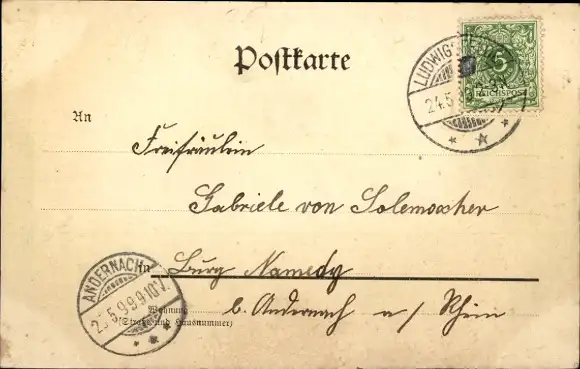 Postkarte
LUDWIGS
24.5
5
REICHSPOST
An
Freifräulein
Gabriele von Solemacher
in Burg Namedy
ANDERNACH
25.5.99 9-10V.
b. Andernach a/ Rhein
Wohnung
(Straße und Hausnummer)